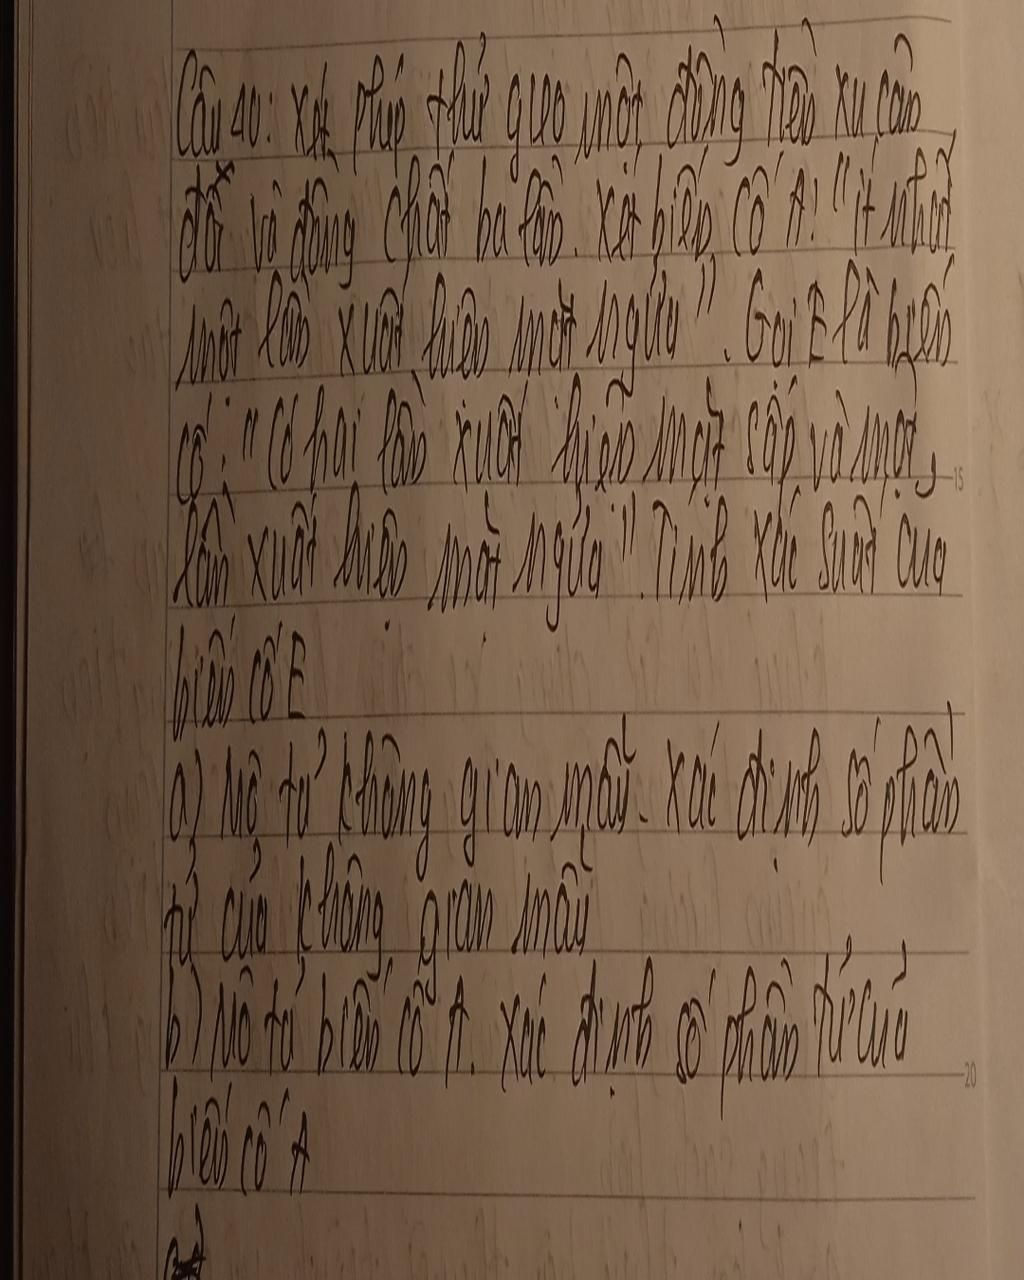 Câu 40: Xét phép thử gieo một đồng tiền xu cân
đối và đồng chất ba lần. Xét biến cố A: "ít nhất
một lần xuất hiện mặt ngửa". Gọi E là biến
cố: "Có hai lần xuất hiện mặt sấp và một
lần xuất hiện mặt ngửa". Tính xác suất của
biến cố E
a) Mô tả không gian mẫu. Xác định số phần
tử của không gian mẫu
b) Mô tả biến cố A. Xác định số phần tử của
biến cố A
15
20